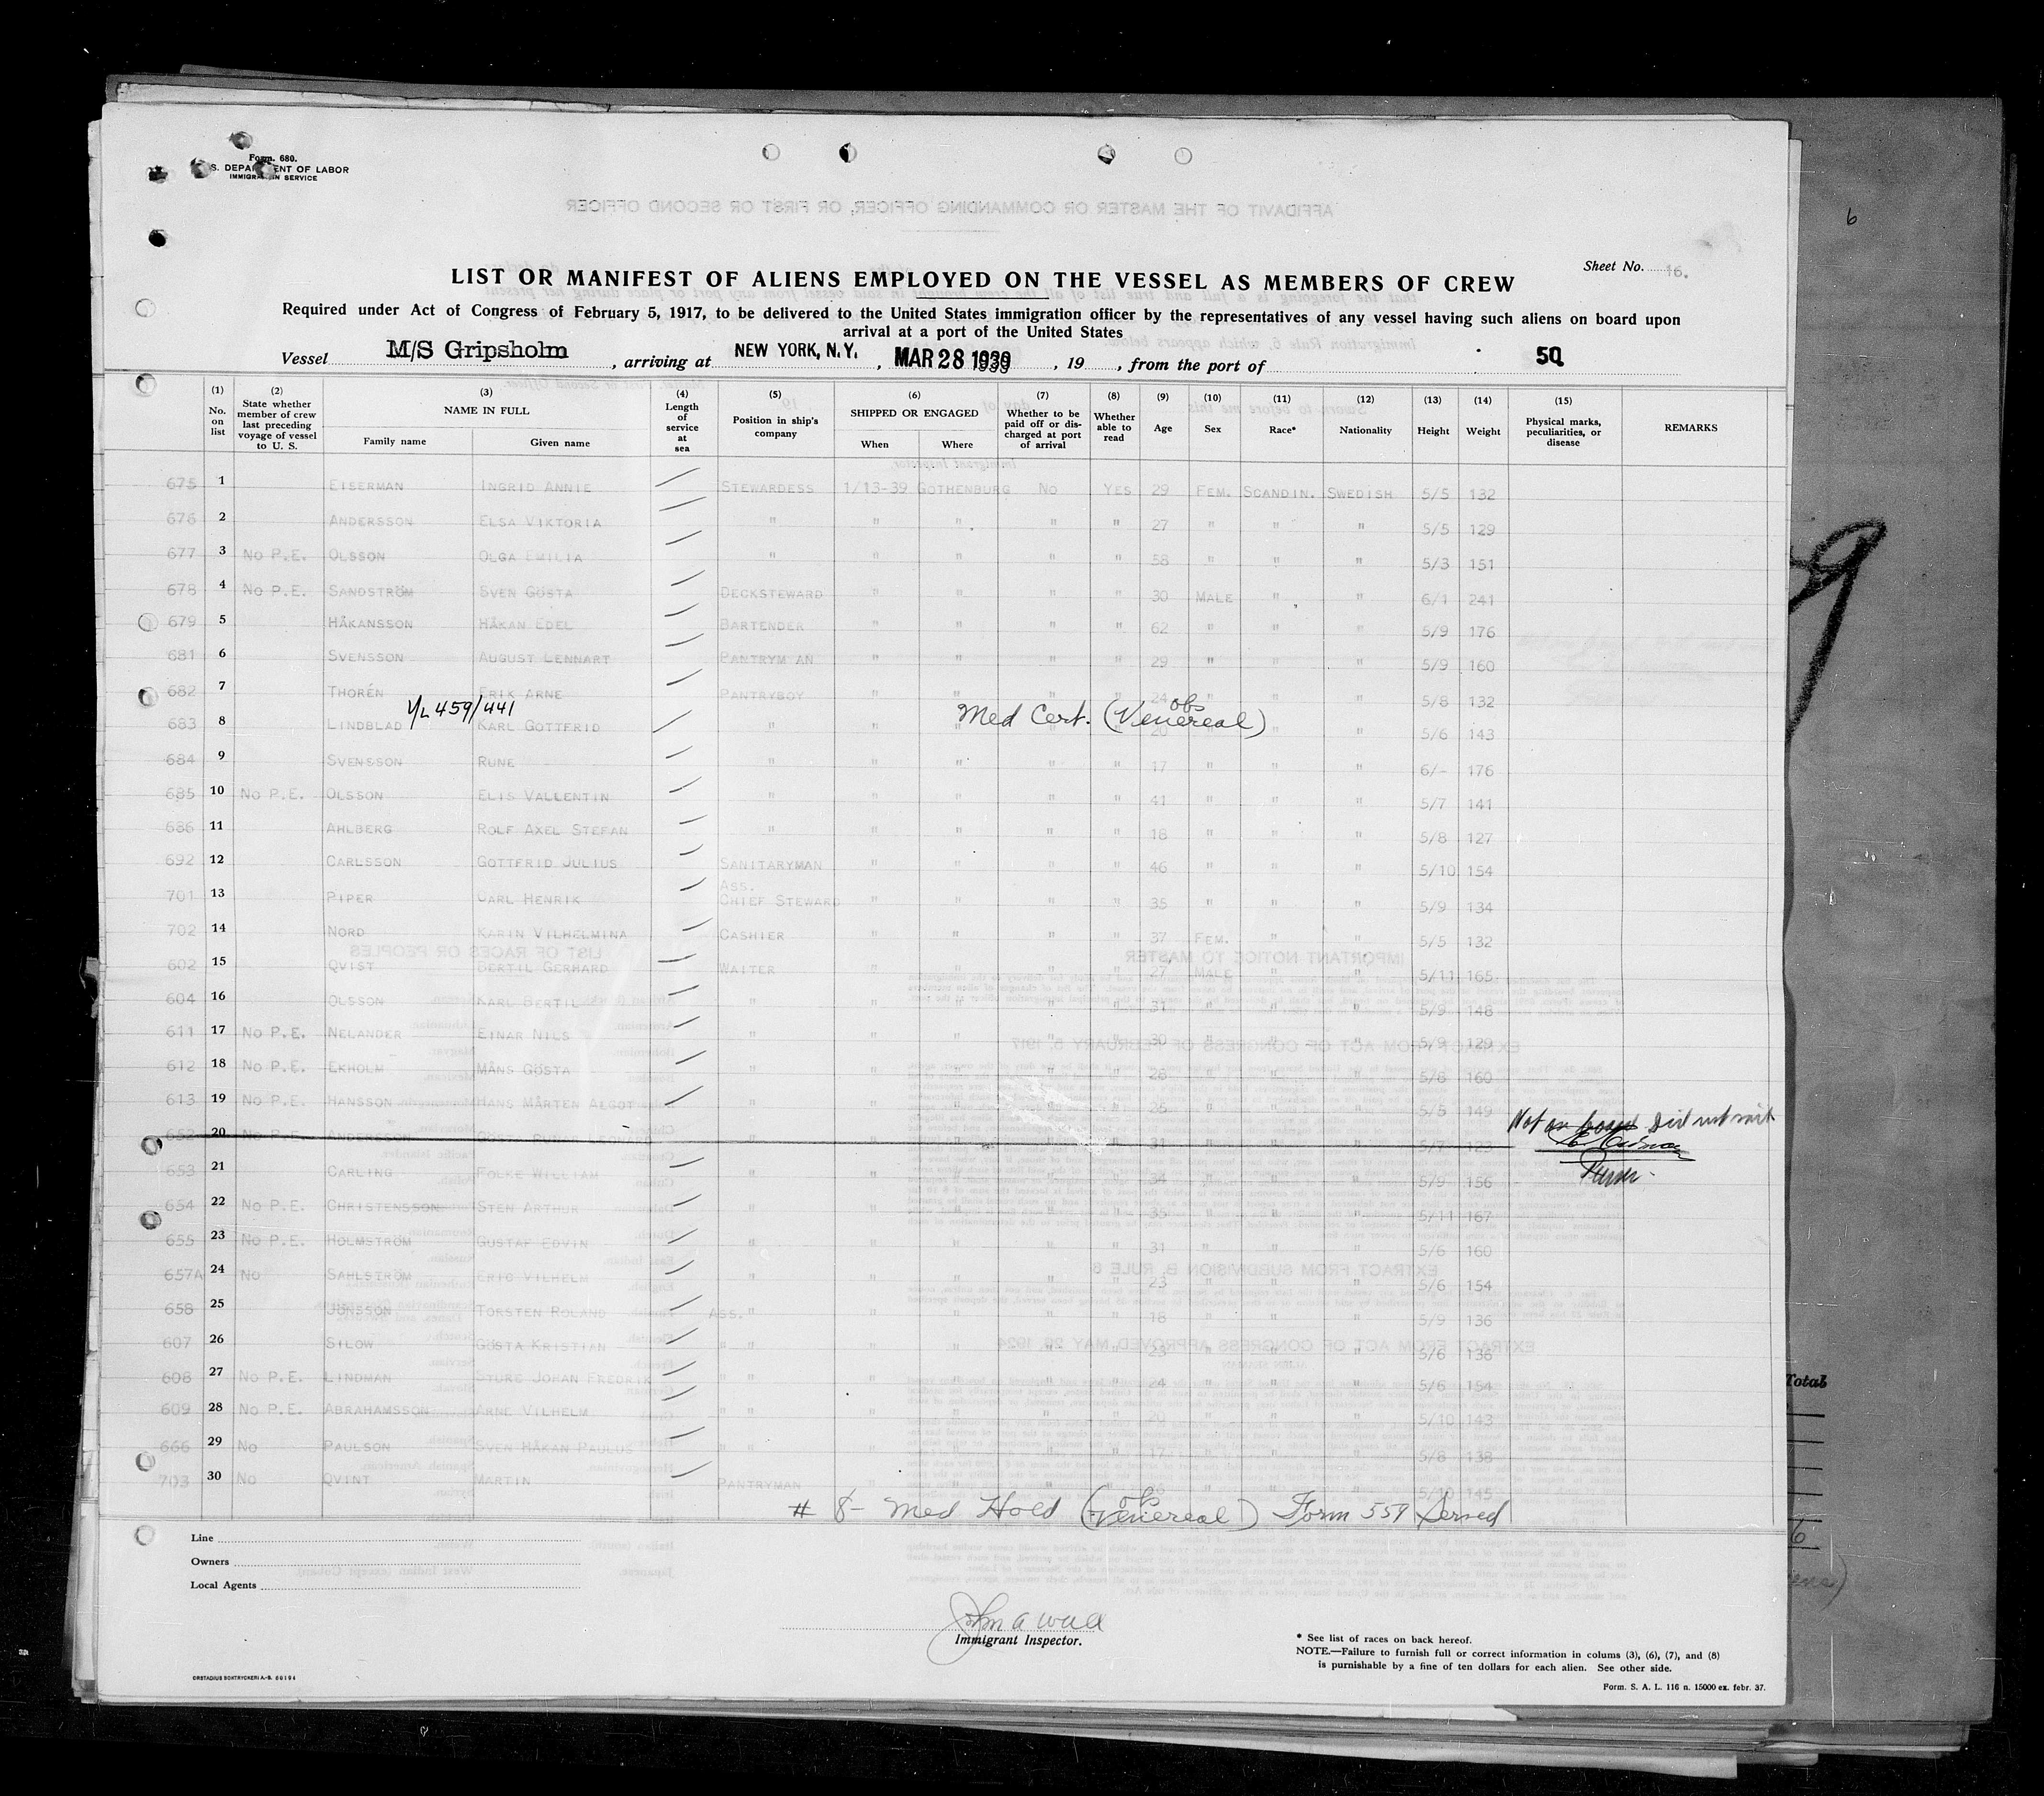 Form. 680.
U. S. DEPARTMENT OF LABOR
IMMIGRATION SERVICE
Sheet No. 16.
LIST OR MANIFEST OF ALIENS EMPLOYED ON THE VESSEL AS MEMBERS OF CREW
Required under Act of Congress of February 5, 1917, to be delivered to the United States immigration officer by the representatives of any vessel having such aliens on board upon
arrival at a port of the United States
Vessel M/S Gripsholm, arriving at NEW YORK, N.Y., MAR 28 1939, 19, from the port of 50
(1) No. on list (2) State whether member of crew last preceding voyage of vessel to U. S. (3) NAME IN FULL Family name Given name (4) Length of service at sea (5) Position in ship's company (6) SHIPPED OR ENGAGED When Where (7) Whether to be paid off or discharged at port of arrival (8) Whether able to read (9) Age (10) Sex (11) Race* (12) Nationality (13) Height (14) Weight (15) Physical marks, peculiarities, or disease REMARKS
675 1 EISERMAN INGRID ANNIE STEWARDESS 1/13-39 GOTHENBURG NO YES 29 FEM. SCANDIN. SWEDISH 5/5 132
676 2 ANDERSSON ELSA VIKTORIA " " " " " 27 " " " 5/5 129
677 3 NO P.E. OLSSON OLGA EMILIA " " " " " 58 " " " 5/3 151
678 4 NO P.E. SANDSTRÖM SVEN GÖSTA DECKSTEWARD " " " " 30 MALE " " 6/1 241
679 5 HÅKANSSON HÅKAN EDEL BARTENDER " " " " 62 " " " 5/9 176
681 6 SVENSSON AUGUST LENNART PANTRYMAN " " " " 29 " " " 5/9 160
682 7 THORÉN ERIK ARNE PANTRYBOY " " " " 24 " " " 5/8 132
459/441 Med Cert. (obs Venereal)
683 8 LINDBLAD KARL GOTTFRID " " " 20 " " 5/6 143
684 9 SVENSSON RUNE " " " " " 17 " " " 6/- 176
685 10 NO P.E. OLSSON ELIS VALLENTIN " " " " " 41 " " " 5/7 141
686 11 AHLBERG ROLF AXEL STEFAN " " " " " 18 " " " 5/8 127
692 12 CARLSSON GOTTFRID JULIUS SANITARYMAN " " " " 46 " " " 5/10 154
701 13 PIPER CARL HENRIK ASS. CHIEF STEWARD " " " " 35 " " " 5/9 134
702 14 NORD KARIN VILHELMINA CASHIER " " " " 37 FEM. " " 5/5 132
602 15 QVIST BERTIL GERHARD WAITER " " " " 27 MALE " " 5/11 165
604 16 OLSSON KARL BERTIL " " " " " 31 " " " 5/9 148
611 17 NO P.E. NELANDER EINAR NILS " " " " " 30 " " " 5/9 129
612 18 NO P.E. EKHOLM MÅNS GÖSTA " " " " " 28 " " " 5/8 160
613 19 NO P.E. HANSSON HANS MÅRTEN ALGOT " " " " 35 " " " 5/5 149
652 20 NO P.E. ANDERSSON GÖSTA 31 5/7 123 Not on board Did not sail
Purser
653 21 CARLING FOLKE WILLIAM " " " " " 34 " " " 5/9 156
654 22 NO P.E. CHRISTENSSON STEN ARTHUR " " " " " 35 " " " 5/11 167
655 23 NO P.E. HOLMSTRÖM GUSTAF EDVIN " " " " " 31 " " " 5/6 160
657A 24 NO SAHLSTRÖM ERIC VILHELM " " " " " 23 " " " 5/6 154
658 25 JONSSON TORSTEN ROLAND ASS. " " " " " 18 " " " 5/9 136
607 26 SILOW GÖSTA KRISTIAN " " " " " " 23 " " " 5/6 136
608 27 NO P.E. LINDMAN STURE JOHAN FREDRIK " " " " " " 24 " " " 5/6 154
609 28 NO P.E. ABRAHAMSSON ARNE VILHELM " " " " " " 20 " " " 5/10 143
666 29 NO PAULSON SVEN HÅKAN PAULUS " " " " " " 17 " " " 5/8 138
703 30 NO QVINT MARTIN PANTRYMAN " " " " " " " 5/10 145
# 8- Med Hold (obs Venereal) Form 559 Served
Line
Owners
Local Agents
John A Wall
Immigrant Inspector.
* See list of races on back hereof.
NOTE.—Failure to furnish full or correct information in colums (3), (6), (7), and (8)
is punishable by a fine of ten dollars for each alien. See other side.
ORSTADIUS BOKTRYCKERI A.-B. 66194
Form. S. A. L. 116 n. 15000 ex. febr. 37.
6
9
Total
6